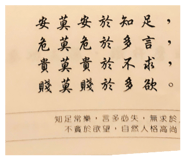 安莫安於知足，
危莫危於多言，
貴莫貴於不求，
賤莫賤於多欲。
知足常樂，言多必失，無求於
不貪於欲望，自然人格高尚